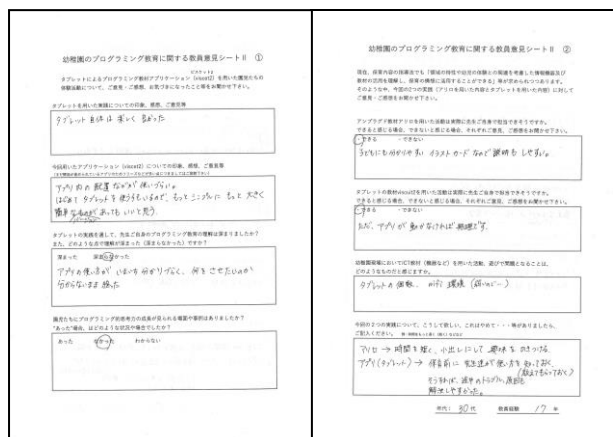 幼稚園のプログラミング教育に関する教員意見シートⅡ ①
ビスケット2
タブレットによるプログラミング教材アプリケーション(viscuit2)を用いた園児たちの
体験活動について、ご意見・ご感想、お気づきになったこと等をお聞かせ下さい。
タブレットを用いた実践についての印象、感想、ご意見等
タブレット自体は楽しく
今回用いたアプリケーション(viscuit2)についての印象、感想、ご意見等
アプリ内の配置などが使いづらい。
はじめてタブレットを使う子もいるので、もっとシンプルにもっと大きく
簡単なものがあっても いいと思う.
タブレットの実践を通して、先生ご自身のプログラミング教育の理解は深まりましたか?
また、どのような点で理解が深まった(深まらなかった)ですか?
深まった 深まらなかった
アプリの使い方が いまいち分かりづらく、何を させたいのか
分からないまま 終った
園児たちにプログラミング的思考力の成長が見られる場面や個所はありましたか?
"あった"場合、はどのような状況や場合でしたか?
あった なかった わからない
幼稚園のプログラミング教育に関する教員意見シートⅡ ②
現在、保育内容の指導法でも「領域の特性や幼児の体験との関連を考慮した情報機器及び
教材の活用を理解し、保育の構想に活用することができる」等が求められつつあります。
そのような中、今回の2つの実践(アリロを用いた内容とタブレットを用いた内容)に対して
ご意見・ご感想をお聞かせ下さい。
アンプラグド教材アリロを用いた活動は実際に先生ご自身で担当できそうですか。
できると感じる場合、できないと感じる場合、それぞれご意見、ご感想をお聞かせ下さい。
・できる ・できない
子どもにも分かりやすい イラストカードなので 説明も しやすい。
タブレットの教材viscuit2を用いた活動は実際に先生ご自身で担当できそうですか。
できると感じる場合、できないと感じる場合、それぞれご意見、ご感想をお聞かせ下さい。
・できる ・できない
ただ、アプリが 動かなければ 無理です.
幼稚園現場においてICT教材(機器など)を用いた活動、遊びで問題となることは、
どのようなものだと感じますか。
タブレットの個数、 環境
今回の2つの実践について、こうして欲しい、これはやめて・・・等がありましたら、
ご記入ください。
アリロ → 時間を短く、小出しにして 興味を ひきつける.
アプリ(タブレット) → 保育前に 先生達が 使い方を 知っておく.
そうすれば、途中のトラブル、
解決しやすかった。
年代: 30代 教員経験 17 年